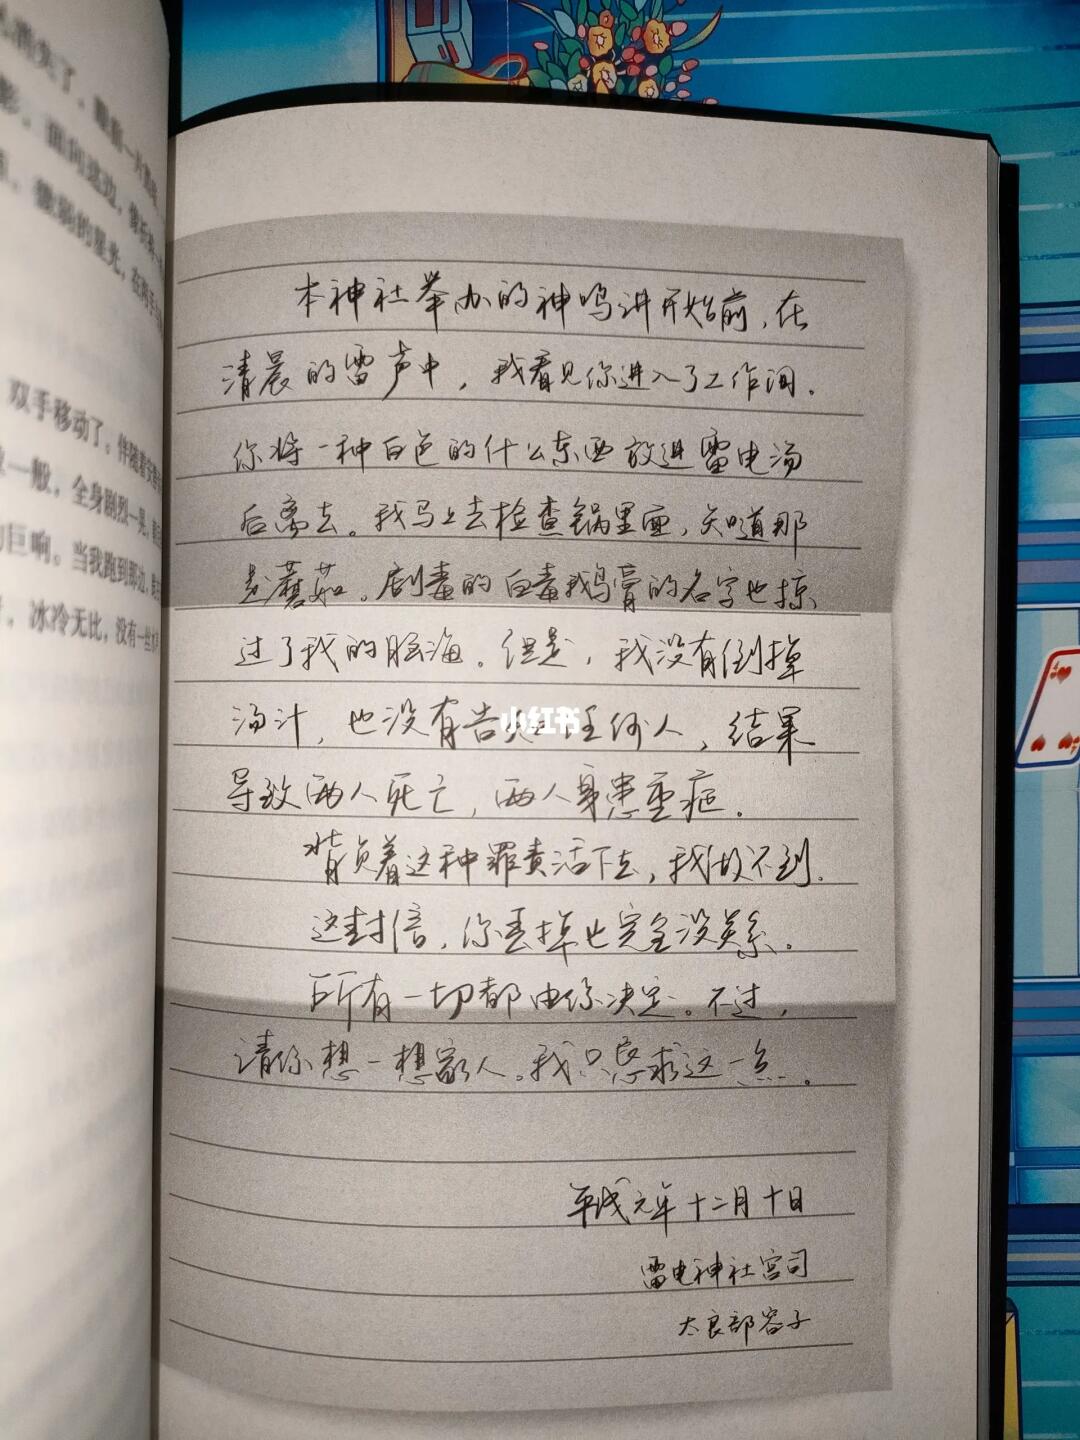 消失了，
双手移动了。伴随着
一般，全身剧烈一晃，
巨响。当我跑到那边，
，冰冷无比，没有一丝
微弱的星光，在
本神社举办的神鸣讲开始前，在
清晨的雷声中，我看见你进入了工作间。
你将一种白色的什么东西放进雷电汤
后离去。我马上去检查锅里面，知道那
是蘑菇。剧毒的白毒鹅膏的名字也掠
过了我的脑海。但是，我没有倒掉
汤汁，也没有告知任何人，结果
导致两人死亡，两人身患重症。
背负着这种罪责活下去，我做不到。
这封信，你丢掉也完全没关系。
所有一切都由你决定。不过，
请你想一想家人。我只恳求这一点。
平成元年十二月十日
雷电神社宫司
太良部容子
小红书